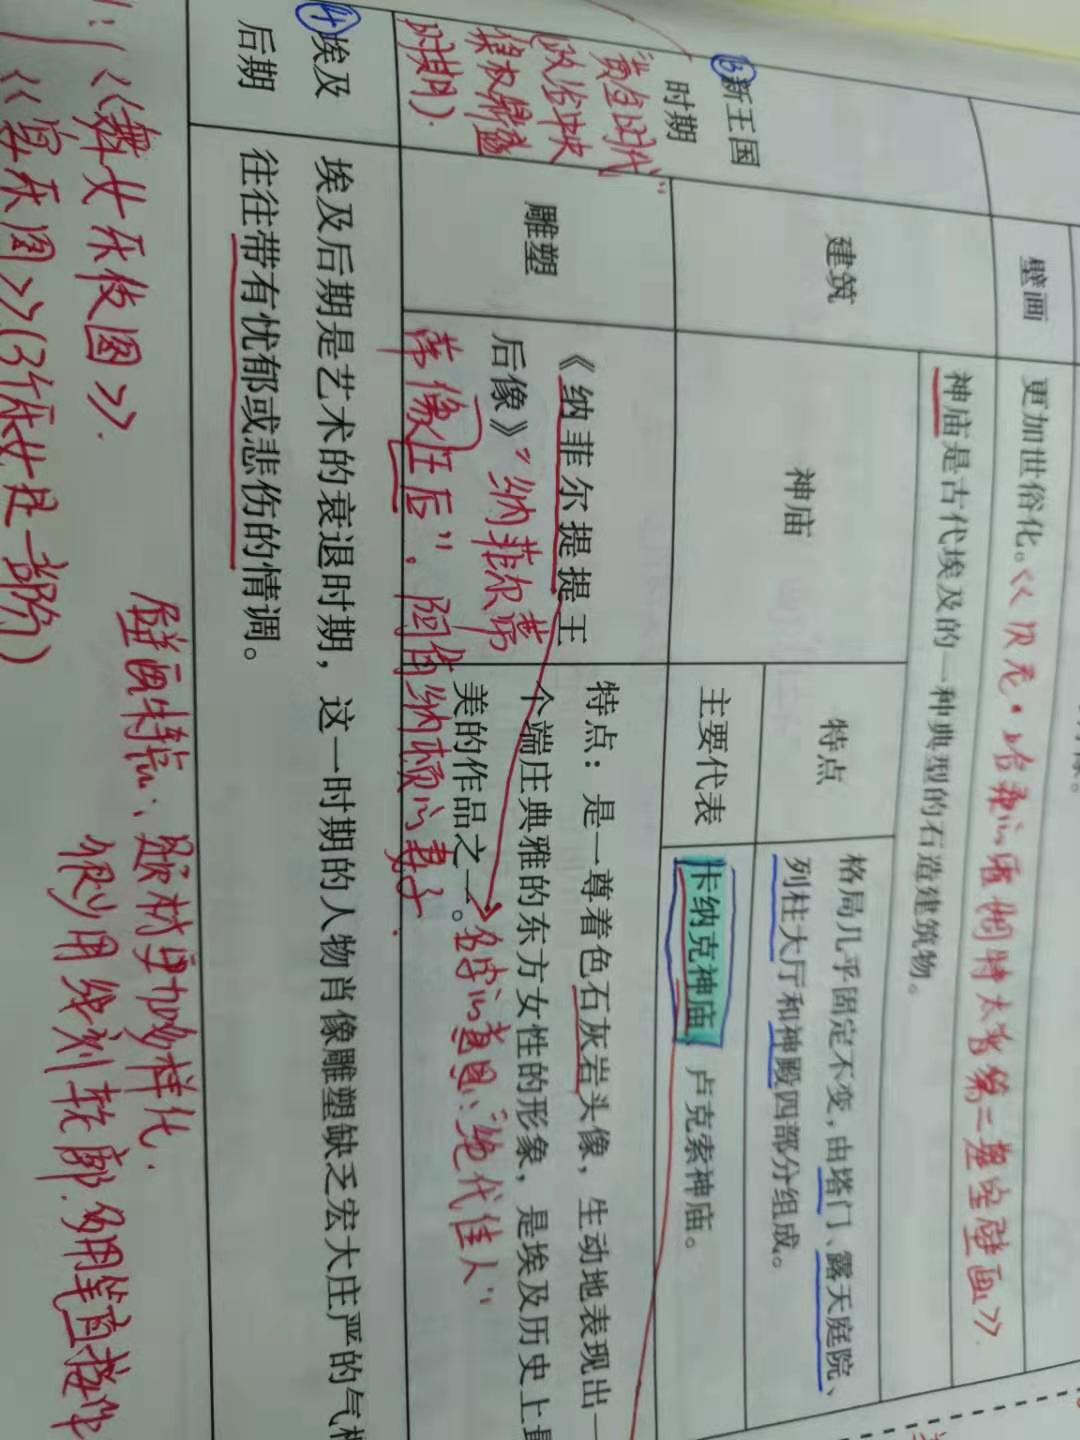 壁画
更加世俗化。
神庙是古代埃及的一种典型的石造建筑物。
③新王国
时期
黄金时代"
政治中央
集权鼎盛
时期).
建筑
神庙
特点
格局几乎固定不变，由塔门、露天庭院、
列柱大厅和神殿四部分组成。
主要代表
卡纳克神庙、卢克索神庙。
雕塑
《纳菲尔提提王
后像》
"纳菲尔蒂
蒂像王后"，阿肯纳顿的妻子.
特点：是一尊着色石灰岩头像，生动地表现出一
个端庄典雅的东方女性的形象，是埃及历史上最
美的作品之一。
名字的意思：绝代佳人"
④埃及
后期
埃及后期是艺术的衰退时期，这一时期的人物肖像雕塑缺乏宏大庄严的气
往往带有忧郁或悲伤的情调。
《舞女乐伎图》.
《宴乐图》(3伎女是一部分)
壁画特点：题材更加多样化.
很少用线刻轮廓.多用笔直接